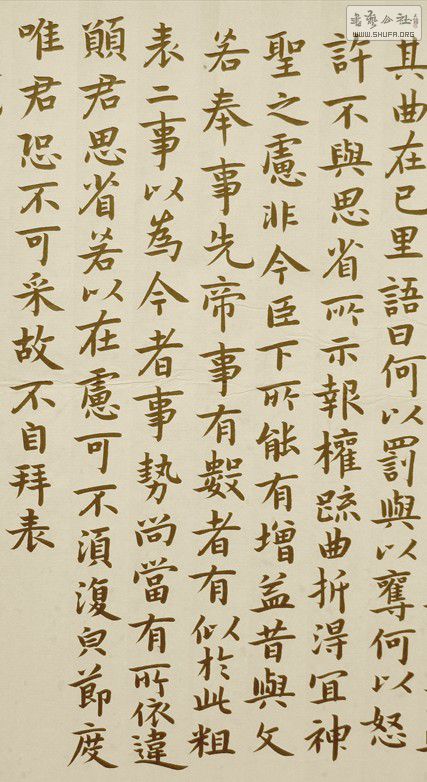 書藝公社
WWW.SHUFA.ORG
其曲在已里語曰何以罰與以奪何以怒
許不與思省所示報權疏曲折得冝神
聖之慮非今臣下所能有增益昔與文
若奉事先帝事有數者有似以於此粗
表二事以為今者事勢尚當有所依違
願君思省若以在慮可不須復皃節度
唯君恐不可采故不自拜表